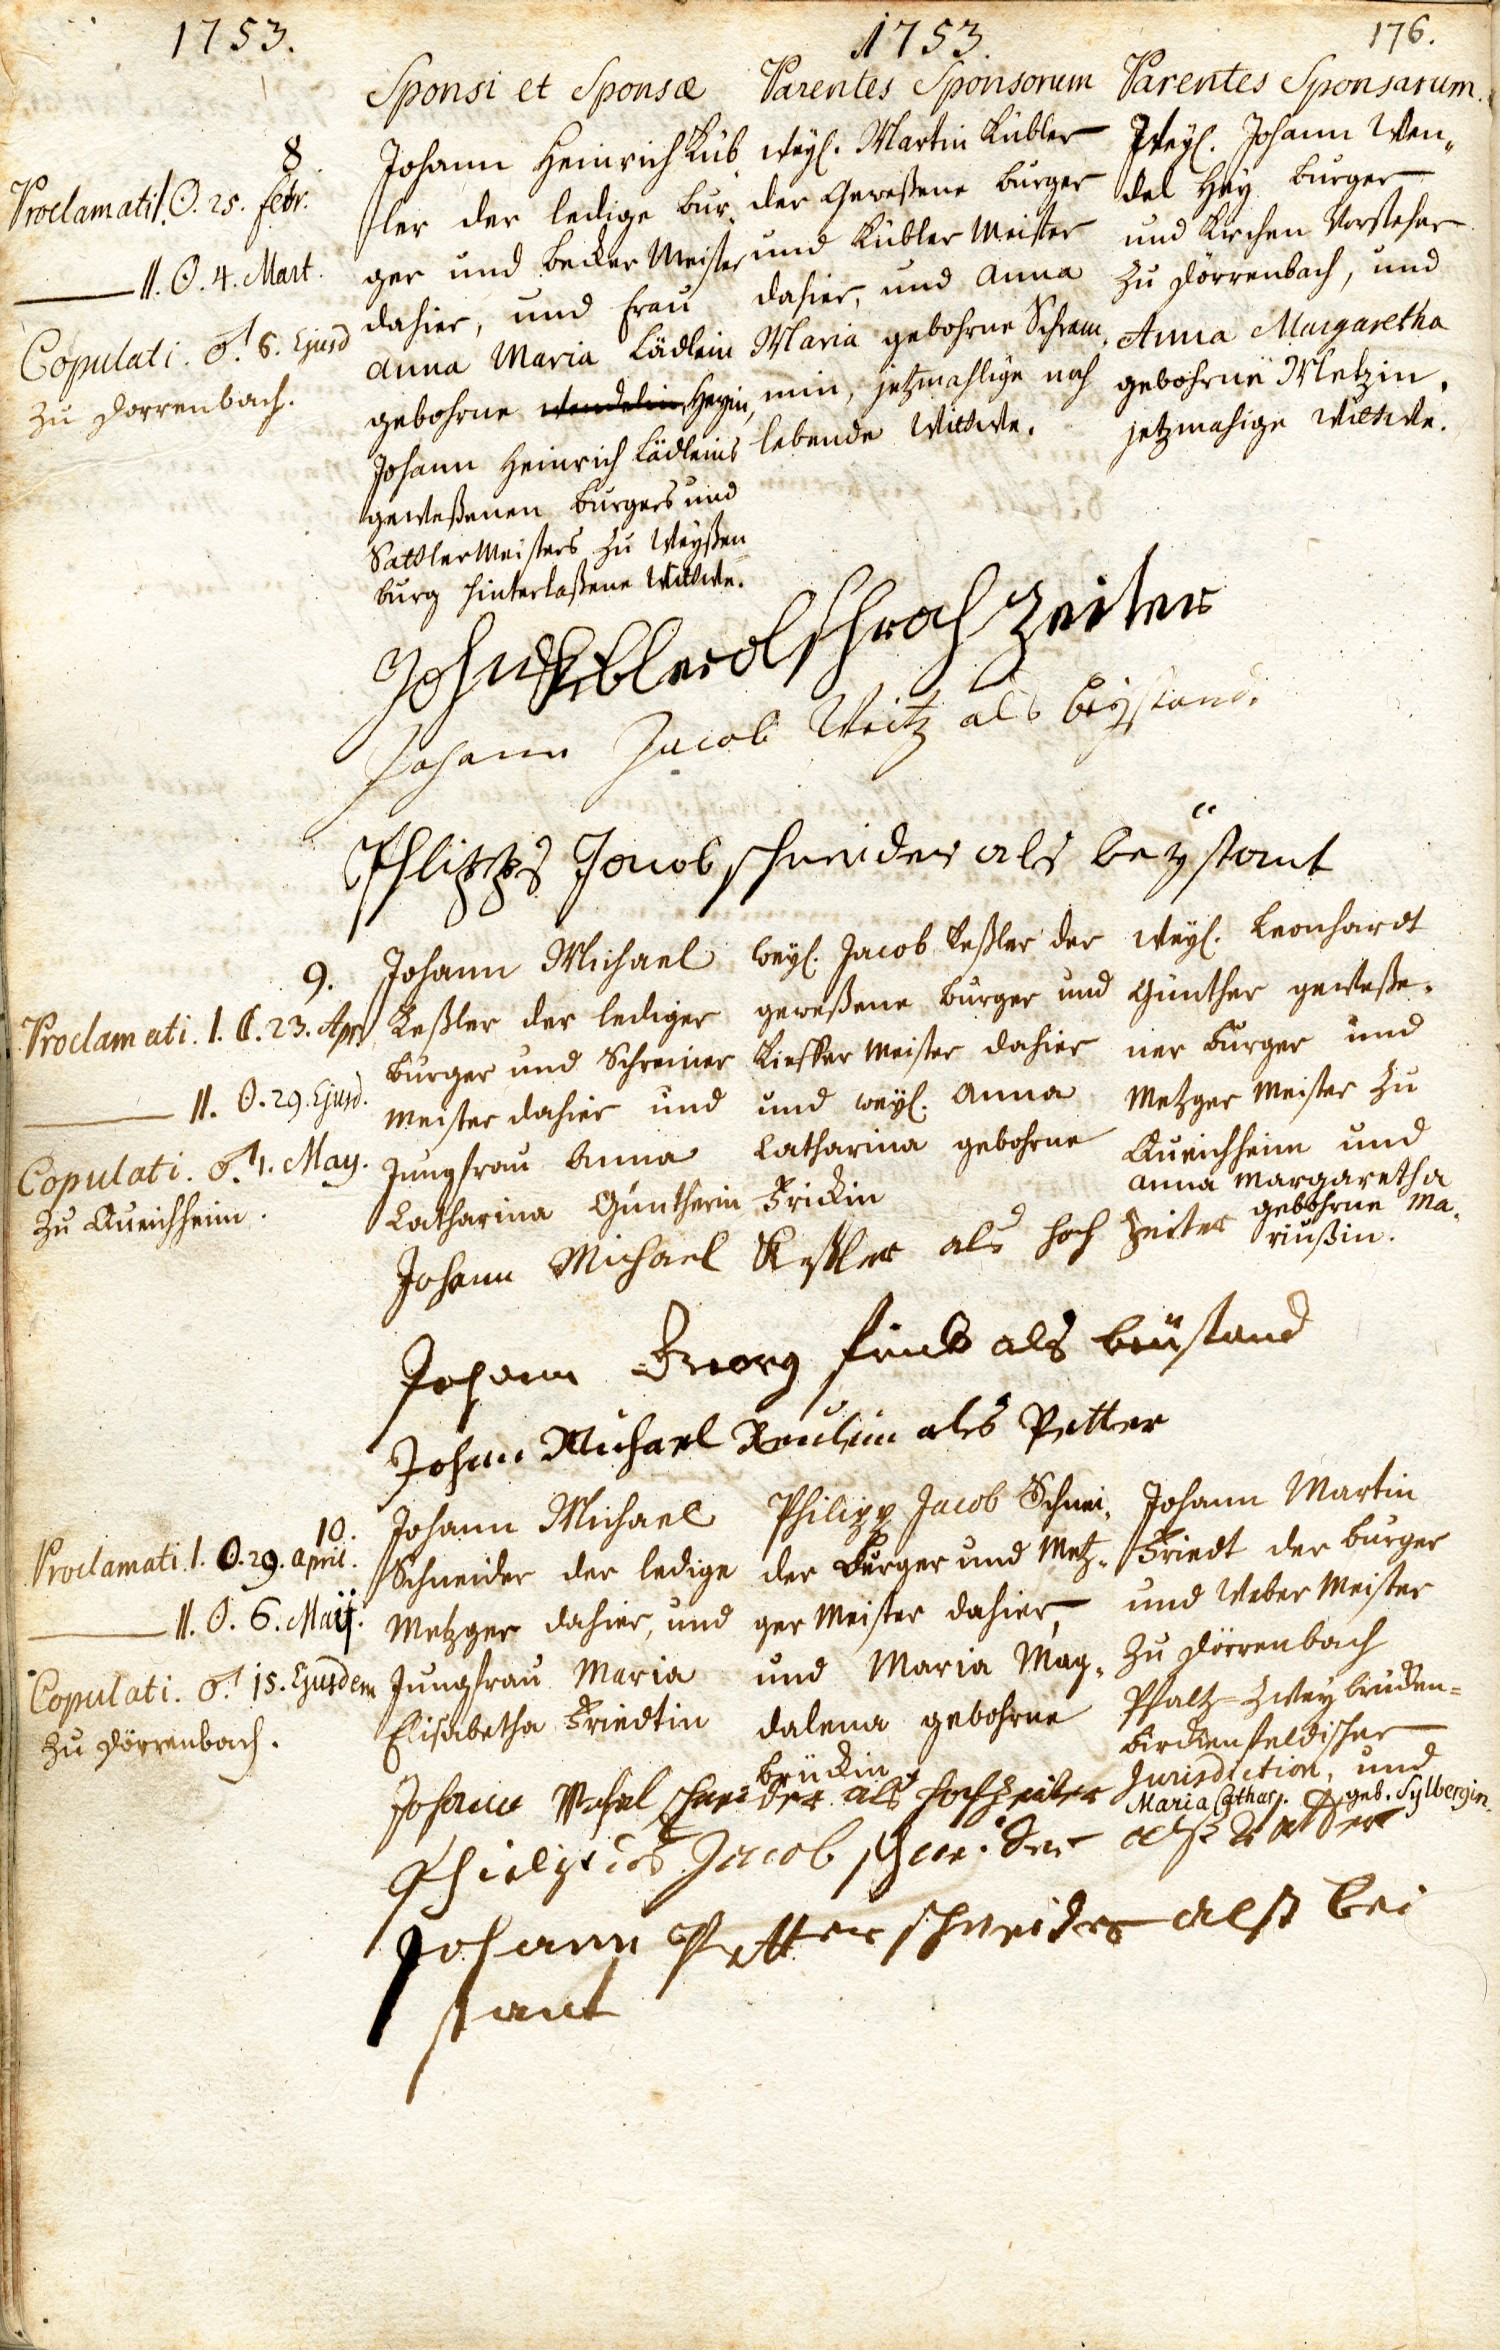 1753.
1753.
176.
Sponsi et Sponsæ
Parentes Sponsorum
Parentes Sponsarum.
8.
Proclamati I. ☉. 25. febr.
II. ☉. 4. Mart.
Copulati. ♂. 6. Ejusd
zu Dorrenbach.
Johann Heinrich Küb
ler der ledige Bur,
ger und Becker Meister
dahier, und Frau
Anna Maria Lädlein
gebohrne Heyin,
Johann Heinrich Lädleins
geweßenen Burgers und
Sattler Meisters zu Weyßen
burg hinterlaßene Wittwe.
weyl. Martin Kübler
der Geweßene Burger
und Kübler Meister
dahier, und Anna
Maria gebohrne Schram,
min, jetzmahlige noch
lebende Wittwe.
Weyl. Johann Wen,
del Hey Burger
und Kirchen Vorsteher
zu Dörrenbach, und
Anna Margaretha
gebohrne Metzin,
jetzmahige Wittwe.
Zeiter
Johann Jacob Weitz als beystand.
Phlipps Jacob schneider als beystant
9.
Proclamati. I. ☾. 23. Apr.
II. ☉. 29. Ejusd.
Copulati. ♂. 1. May.
zu Queichheim.
Johann Michael
Keßler der lediger
Burger und Schreiner
Meister dahier und
Jungfrau Anna
Catharina Güntherin
weyl. Jacob Keßler der
geweßene Burger und
Kieffer Meister dahier
und weyl. Anna
Catharina gebohrne
Frickin
weyl. Leonhardt
Günther geweße,
ner Burger und
Metzger Meister zu
Queichheim und
Anna Margaretha
gebohrne Ma,
riußin.
Johann Michael Keßler als hoch Zeiter
Johann Georg Frick als beüstand
Johann Michael als Petter
10.
Proclamati. I. ☉. 29. April.
II. ☉. 6. Maij.
Copulati. ♂. 15. Ejusdem
zu Dörrenbach.
Johann Michael
Schneider der ledige
Metzger dahier, und
Jungfrau Maria
Elisabetha Friedtin
Philipp Jacob Schnei,
der Burger und Metz,
ger Meister dahier,
und Maria Mag,
dalena gebohrne
Brückin
Johann Martin
Friedt der Burger
und Weber Meister
zu Dörrenbach
Pfaltz=Zweybrücken=
Birckenfeldischer
Jurisdiction, und
Maria Cathar. geb. Sylbergin.
Johann schneider als hochzeiter
Jacob schneider alß Vatter
Johann Petter schneider alß bei
stant